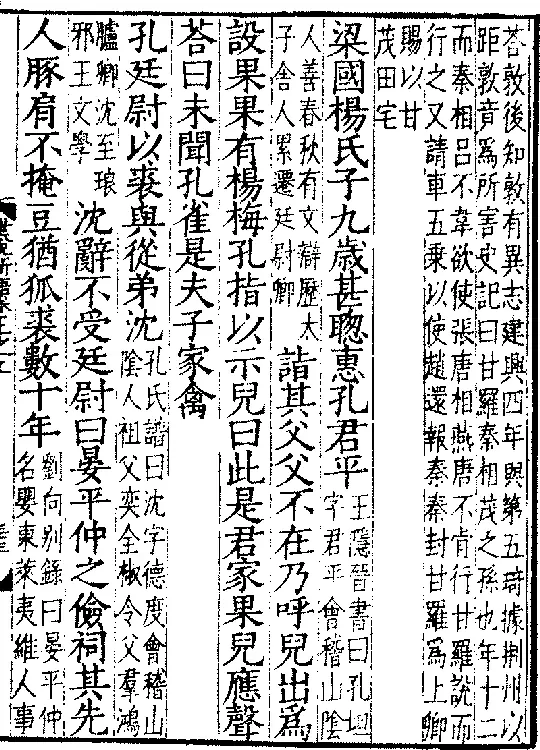 荅敦後知敦有異志建興四年與第五琦據荆州以
距敦竟爲所害史記曰甘羅秦相茂之孫也年十二
而秦相呂不韋欲使張唐相燕唐不肯行甘羅説而
行之又請車五乘以使趙還報秦秦封甘羅爲上卿
賜以甘
茂田宅
梁國楊氏子九歲甚聰惠孔君平
王隱晉書曰孔坦
字君平會稽山陰
人善春秋有文辯歷太
子舍人累遷廷尉卿
詣其父父不在乃呼兒出爲
設果果有楊梅孔指以示兒曰此是君家果兒應聲
荅曰未聞孔雀是夫子家禽
孔廷尉以裘與從弟沈
孔氏譜曰沈字德度會稽山
陰人祖父奕全椒令父羣鴻
臚卿沈至琅
邪王文學
沈辭不受廷尉曰晏平仲之儉祠其先
人豚肩不掩豆猶狐裘數十年
劉向別錄曰晏平仲
名嬰東萊夷維人事